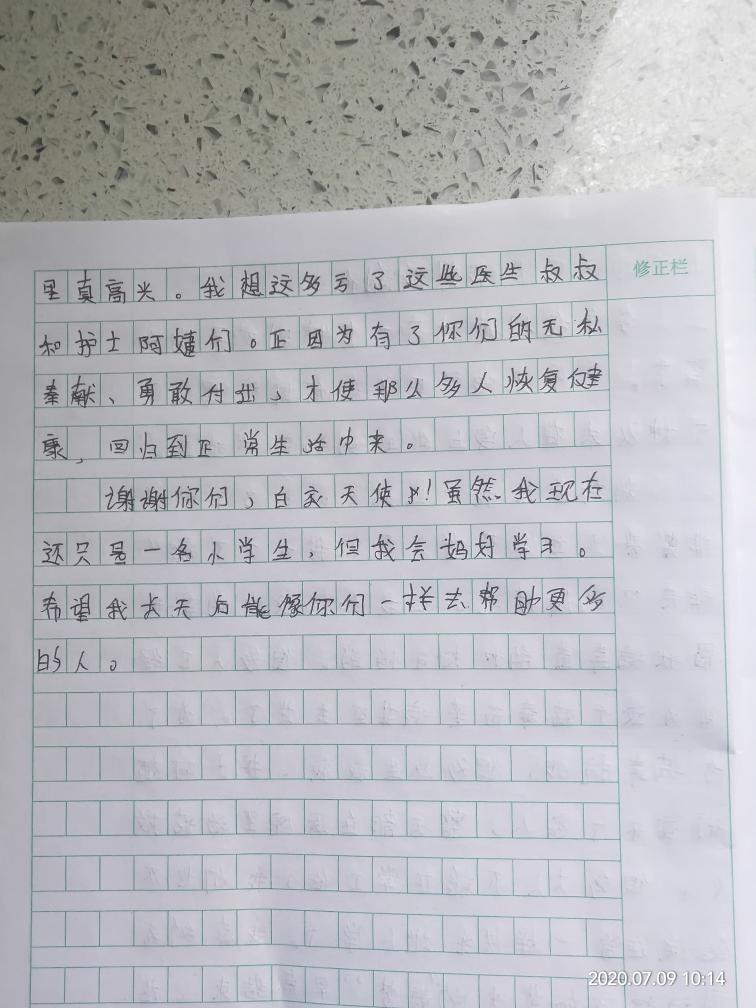 里真高兴。我想这多亏了这些医生叔叔
修正栏
和护士阿姨们。正因为有了你们的无私
奉献、勇敢付出,才使那么多人恢复健
康,回归到正常生活中来。
谢谢你们,白衣天使!虽然我现在
还只是一名小学生,但我会好好学习。
希望我长大后能像你们一样去帮助更多
的人。
2020.07.09 10:14